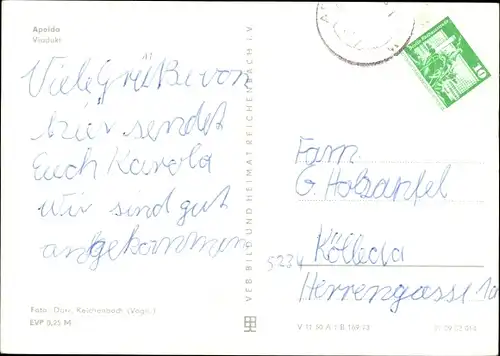 Apolda
Viadukt
Viele Grüße von
hier sendet
Euch Karola
Wir sind gut
angekommen
Foto: Darr, Reichenbach (Vogtl.)
EVP 0,25 M
VEB BILD UND HEIMAT REICHENBACH I. V.
10
Fam.
G. Holzapfel
5234 Kölleda
Herrengasse 1a
V 11 50 A 1 B